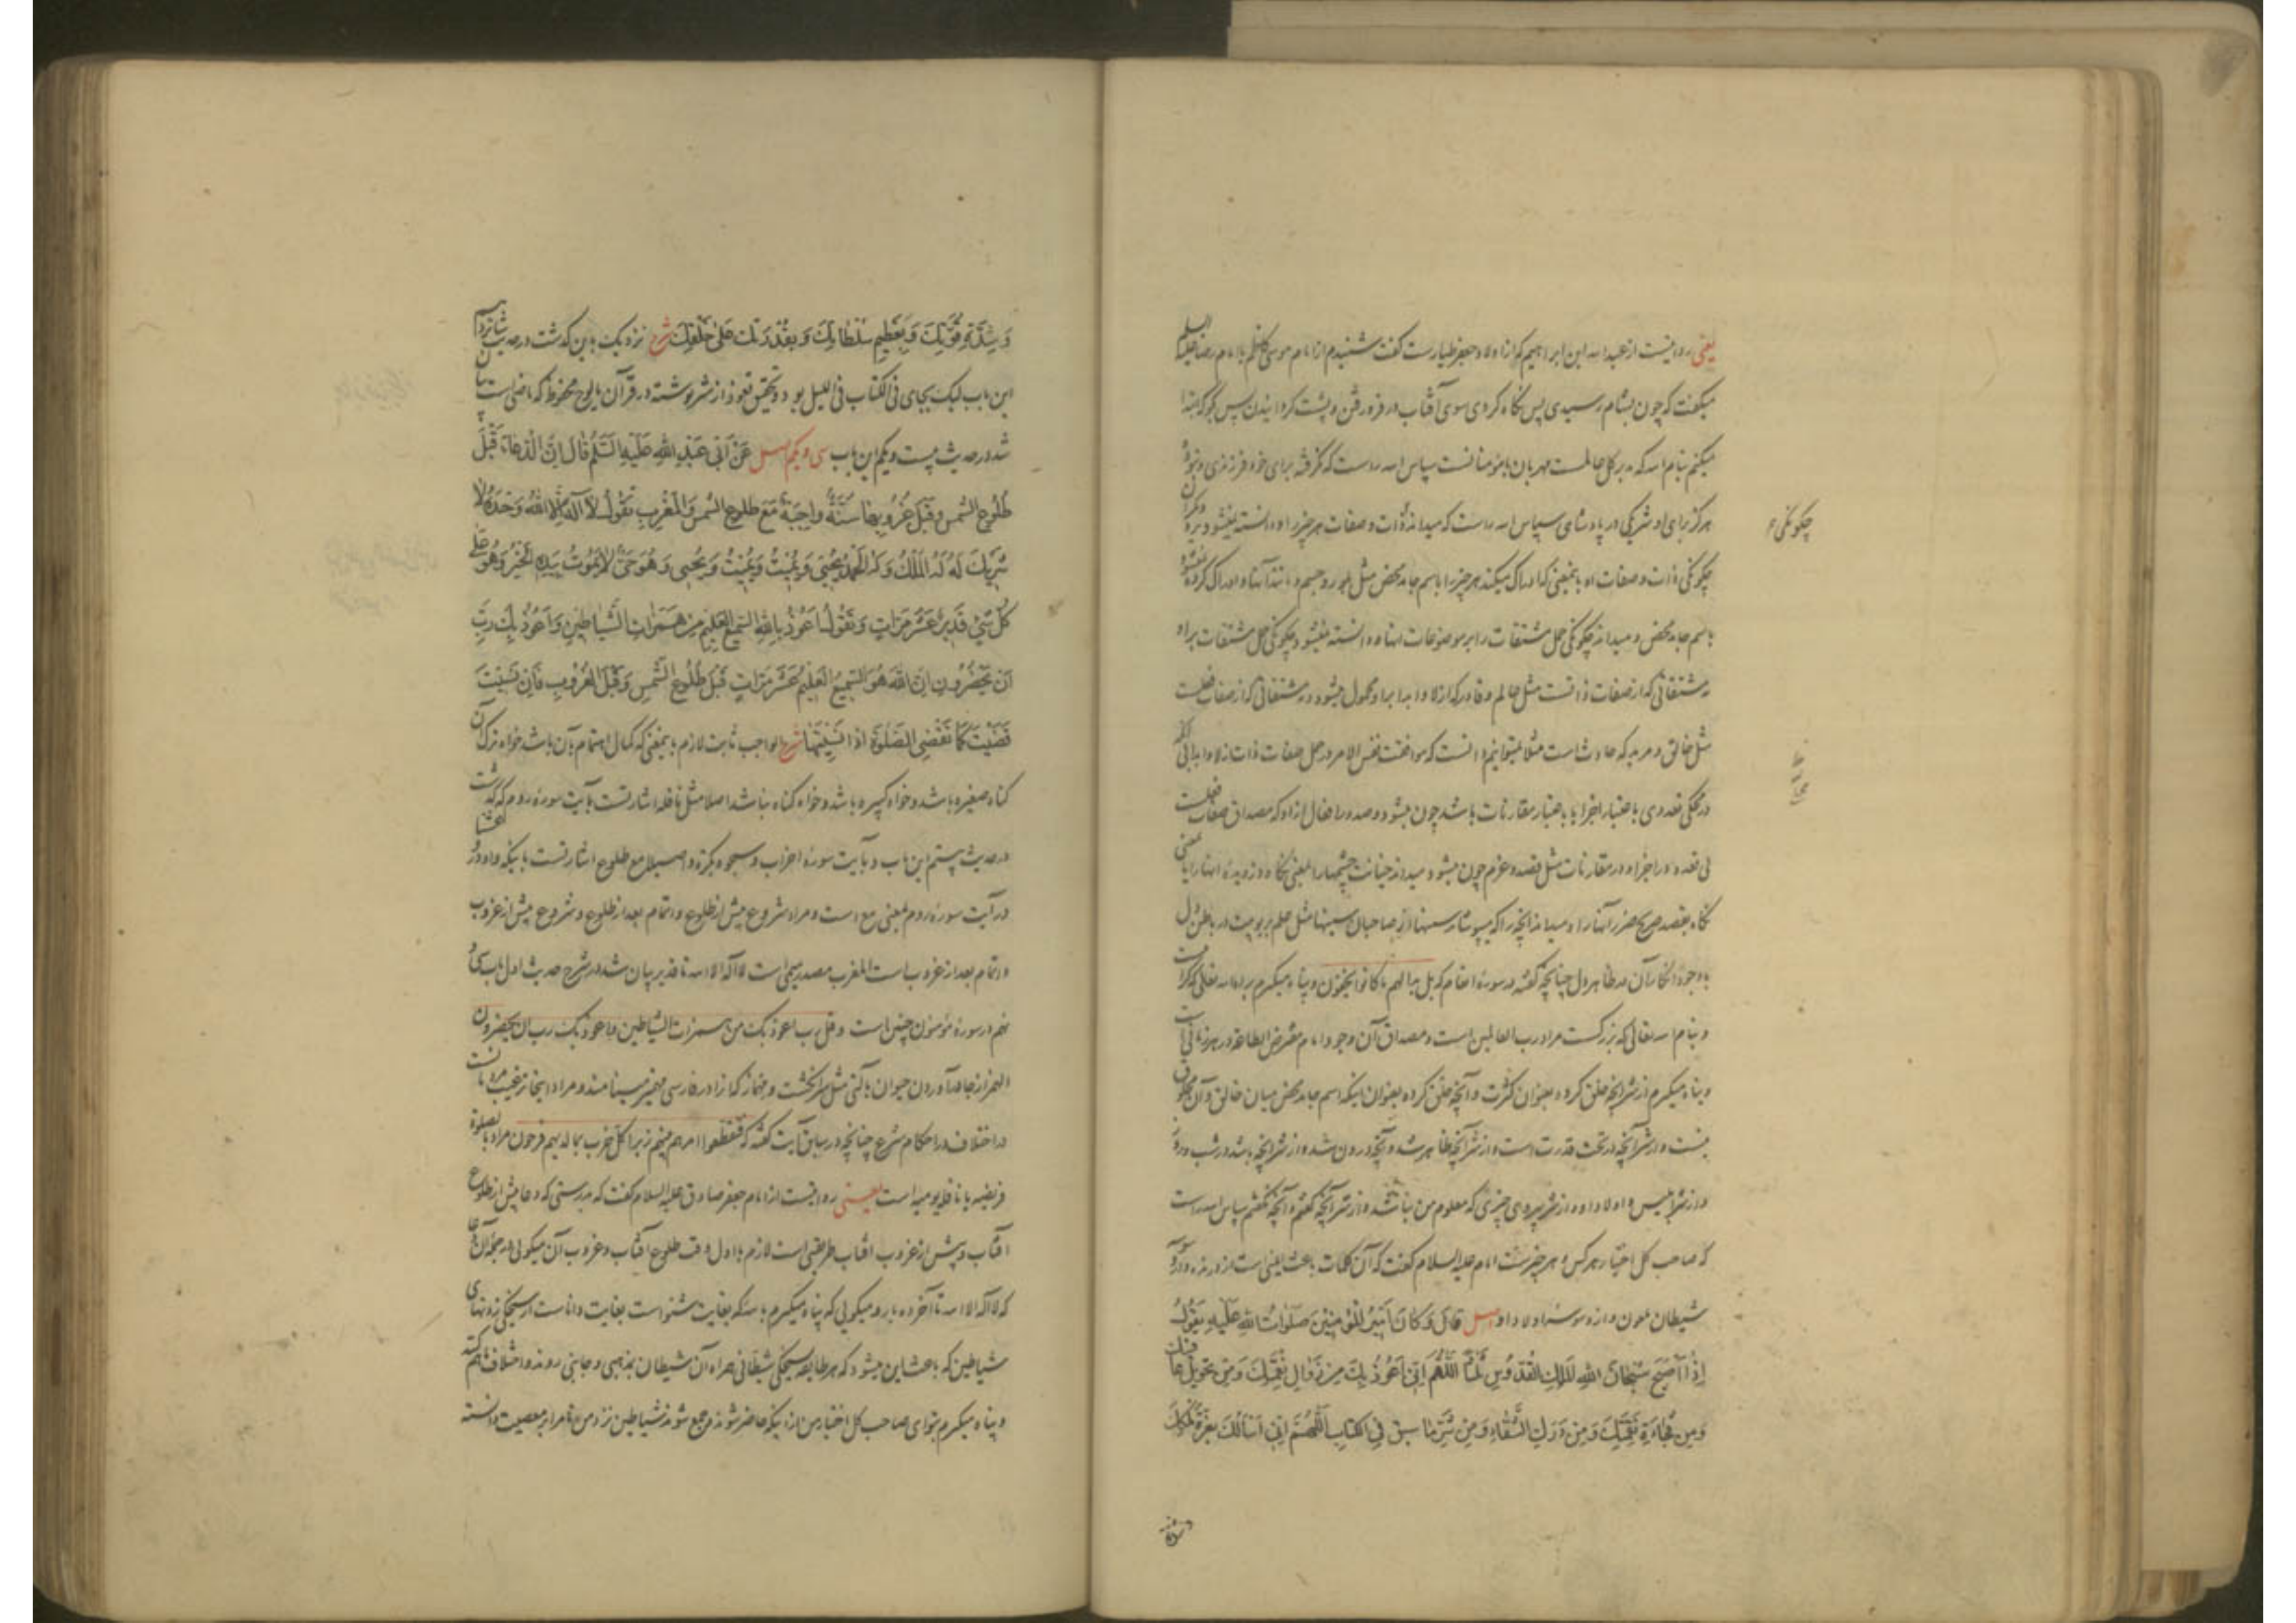 یعنی روایتست از عبد الله ابن ابراهیم که از اولاد جعفر طیارست گفت شنیدم از امام موسی کاظم یا امام رضا علیه السلم
میگفت که چون بشام رسیدی پس نگاه کردی سوی آفتاب در فرو رفتن و پشت گردانیدن پس بگو که ابتدا
میکنم بنام الله که مهربان بمؤمنانست سپاس الله راست که نگرفته برای خود فرزندی و نبوده
هرگز برای او شریکی در پادشاهی سپاس الله راست که میداند ذات و صفات هر چیز را و دانسته نمیشود
چگونگی ذات و صفات او باینمعنی که ادراک میکند هر چیز را باسم جامد محض مثل بلور و جسم و مانند آنها و ادراک کرده نمیشود
باسم جامد محض و میداند چگونگی حمل مشتقات را بر موضوعات آنها و دانسته نمیشود چگونگی حمل مشتقات بر او
در مشتقاتی که از صفات ذاتست مثل عالم و قادر که ازلا و ابدا بر او محمول میشود و در مشتقاتی که از صفات فعلست
مثل خالق و مرید که حادث است مثلا نمیتوانیم دانست که موافقت نفس الامر در حمل صفات ذات ازلا و ابدا بی آنکه
در محکی تعددی باعتبار اجزا یا باعتبار مقارنات باشد چون میشود و صدور افعال از او که مصداق صفات فعلست
بی تعدد در اجزا و در مقارنات مثل قصد و عزم چون میشود و میداند خیانت چشمها را یعنی نگاه دزدیده آنها را یا
نگاه بقصد ضرر آنها را و میداند آنچه را که میپوشاند سینها از صاحبان سینها مثل علم بربوبیت در باطن دل
با وجود انکار آن در ظاهر دل چنانچه گفته در سورهٔ انعام که بل بدا لهم ما کانوا یخفون و پناه میگیرم بروی الله تعالی که کراست
و بنام الله تعالی که بزرگست مراد رب العالمین است و مصداق آن وجود امام مفترض الطاعة در هر زمانی است
و پناه میگیرم از شر آنچه خلق کرد بعنوان کثرت و آنچه خلق کرده بعنوان اینکه اسم جامد محض میان خالق و آن مخلوق
نیست و از شر آنچه در تحت قدرت است و از شر آنچه ظاهر شد و آنچه درون شد و از شر آنچه باشد در شب و روز
و از شر ابلیس و اولاد او و از شر چیزی که معلوم من نباشد و از شر آنچه گفتم و آنچه نگفتم سپاس الله راست
که صاحب کل اختیار هر کس و هر چیزست امام علیه السلام گفت که آن کلمات باعث ایمنی است از درنده و از
شیطان ملعون و از وسوسهٔ اولاد او اصل قَالَ وَكَانَ أَمِيرُ الْمُؤْمِنِينَ صَلَوَاتُ اللهِ عَلَيْهِ يَقُولُ
إِذَا أَصْبَحَ سُبْحَانَ اللهِ الْمَلِكِ الْقُدُّوسِ ثَلَاثًا اَللَّهُمَّ إِنِّي أَعُوذُ بِكَ مِنْ زَوَالِ نِعْمَتِكَ وَمِنْ تَحْوِيلِ عَافِيَتِكَ
وَمِنْ فُجَاءَةِ نَقِمَتِكَ وَمِنْ دَرَكِ الشَّقَاءِ وَمِنْ شَرِّ مَا سَبَقَ فِي الْكِتَابِ اَللَّهُمَّ إِنِّي أَسْأَلُكَ بِعِزَّةِ مُلْكِكَ
چگونگی
وَشِدَّةِ قُوَّتِكَ وَبِعَظِيمِ سُلْطَانِكَ وَبِقُدْرَتِكَ عَلَى خَلْقِكَ شرح نزدیک باین گذشت در حدیث شانزدهم
این باب لیک بجای فی الکتاب فی اللیل بود و تحقیق تعوذ از شر نوشته در قرآن یا لوح محفوظ که ماضی است بیان
شد در حدیث بیست و یکم این باب سی و یکم اصل عَنْ أَبِي عَبْدِ اللهِ عَلَيْهِ السَّلَمُ قَالَ إِنَّ الدُّعَاءَ قَبْلَ
طُلُوعِ الشَّمْسِ وَقَبْلَ غُرُوبِهَا سُنَّةٌ وَاجِبَةٌ مَعَ طُلُوعِ الشَّمْسِ وَالْمَغْرِبِ تَقُولُ لَا آلهَ إِلَّا اللهُ وَحْدَهُ لَا
شَرِيكَ لَهُ لَهُ الْمُلْكُ وَلَهُ الْحَمْدُ يُحْيِي وَيُمِيتُ وَيُمِيتُ وَيُحْيِي وَهُوَ حَيٌّ لَا يَمُوتُ بِيَدِهِ الْخَيْرُ وَهُوَ عَلَى
كُلِّ شَيْءٍ قَدِيرٌ عَشْرَ مَرَّاتٍ وَتَقُولُ أَعُوذُ بِاللهِ السَّمِيعِ الْعَلِيمِ مِنْ هَمَزَاتِ الشَّيَاطِينِ وَأَعُوذُ بِكَ رَبِّ
أَنْ يَحْضُرُونِ إِنَّ اللهَ هُوَ السَّمِيعُ الْعَلِيمُ عَشْرَ مَرَّاتٍ قَبْلَ طُلُوعِ الشَّمْسِ وَقَبْلَ الْغُرُوبِ فَإِنْ نَسِيتَ
قَضَيْتَ كَمَا تَقْضِي الصَّلَوةَ إِذَا نَسِيتَهَا شرح الواجب ثابت لازم باینمعنی که کمال اهتمام بآن باشد خواه ترک آن
گناه صغیره باشد و خواه کبیره باشد و خواه گناه نباشد اصلا مثل نافله اشارتست بآیت سوره روم که گذشت
در حدیث بیستم این باب و بآیت سورهٔ احزاب و سبحوه بکرة و اصیلا مع طلوع اشارتست باینکه واو در
در آیت سوره روم بمعنی مع است و مراد شروع پیش از طلوع و اتمام بعد از طلوع و شروع پیش از غروب
و اتمام بعد از غروب است المغرب مصدر میمی است لا اله الا الله تا قدیر بیان شد در شرح حدیث اول باب سی و
نهم در سورهٔ مؤمنون چنین است و قل رب اعوذ بک من همزات الشیاطین و اعوذ بک رب ان یحضرون
الهمز از جا درآوردن حیوان بآلتی مثل سر انگشت و مهماز که آنرا در فارسی مهمیز مینامند و مراد اینجا ترغیب مردمانست
در اختلاف در احکام شرع چنانچه در سابق آیت گفته که فتقطعوا امرهم بینهم زبرا کل حزب بما لدیهم فرحون مراد بصلوة
فریضه یا نافله یومیه است یعنی روایتست از امام جعفر صادق علیه السلام گفت که بدرستی که دعا پیش از طلوع
آفتاب و پیش از غروب آفتاب طریقتی است لازم با اول وقت طلوع آفتاب و غروب آن میگویی در جمله آن دعا
که لا اله الا الله تا آخر ده بار و میگویی که پناه میگیرم بالله که بغایت شنواست بغایت داناست از سیخکی زدنهای
شیاطین که باعث این میشود که هر طایفه بسیخکی شیطانی همراه آن شیطان بمذهبی و جانبی روند و اختلاف بهم
و پناه میگیرم بتو ای صاحب کل اختیار من از اینکه حاضر شوند و جمع شوند شیاطین نزد من تا مرا بر معصیت